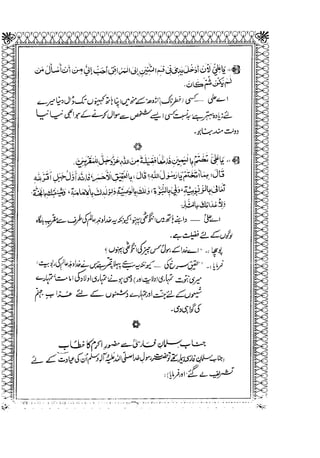 يَا عَلِيُّ لَأَنْ أُدْخِلَ يَدِي فِي فَمِ التِّنِّينِ إِلَى الْمِرْفَقِ أَحَبُّ إِلَيَّ مِنْ أَنْ أَسْأَلَ مَنْ
لَمْ يَكُنْ ثُمَّ كَانَ.
اے علی — کسی اژدھے کے منہ میں اپنا ہاتھ کہنیوں تک ڈال دینا میرے
لئے زیادہ بہتر ہے بہ نسبت کسی ایسے شخص سے سوال کرنے کے جو ابھی نیا نیا
دولت مند بنا ہو۔
يَا عَلِيُّ تَخَتَّمْ بِالْيَمِينِ فَإِنَّهَا فَضِيلَةٌ مِنَ اللهِ عَزَّ وَجَلَّ لِلْمُقَرَّبِينَ.
قَالَ: بِمَ أَتَخَتَّمُ يَا رَسُولَ اللهِ؟ قَالَ: بِالْعَقِيقِ الْأَحْمَرِ فَإِنَّهُ أَوَّلُ جَبَلٍ أَقَرَّ لِلّٰهِ
تَعَالَى بِالرُّبُوبِيَّةِ وَلِي بِالنُّبُوَّةِ وَلَكَ بِالْوَصِيَّةِ وَلِوُلْدِكَ بِالْإِمَامَةِ وَلِشِيعَتِكَ بِالْجَنَّةِ
وَلِأَعْدَائِكَ بِالنَّارِ.
اے علی — داہنے ہاتھ میں انگوٹھی پہنو کیونکہ یہ خداوند عالم کی طرف سے مقرب بارگاہ
لوگوں کے لئے فضیلت ہے۔
پوچھا: اے خدا کے رسول کس چیز کی انگوٹھی پہنوں؟
فرمایا: عقیق سرخ کی — کیونکہ یہ سب سے پہلا پتھر ہے جس نے خداوند عالم کی ربوبیت
میری نبوت تمہاری وصایت اور تمہاری اولاد کی امامت تمہارے
شیعوں کے لئے جنت اور تمہارے دشمنوں کے لئے عذاب جہنم
کی گواہی دی۔
جناب سلمان فارسی سے حضور اکرم کا خطاب
جناب سلمان فارسی بیمار تھے تو حضرت رسول خدا صلی اللہ علیہ وآلہ وسلم ان کی عیادت کے لئے
تشریف لے گئے اور فرمایا: